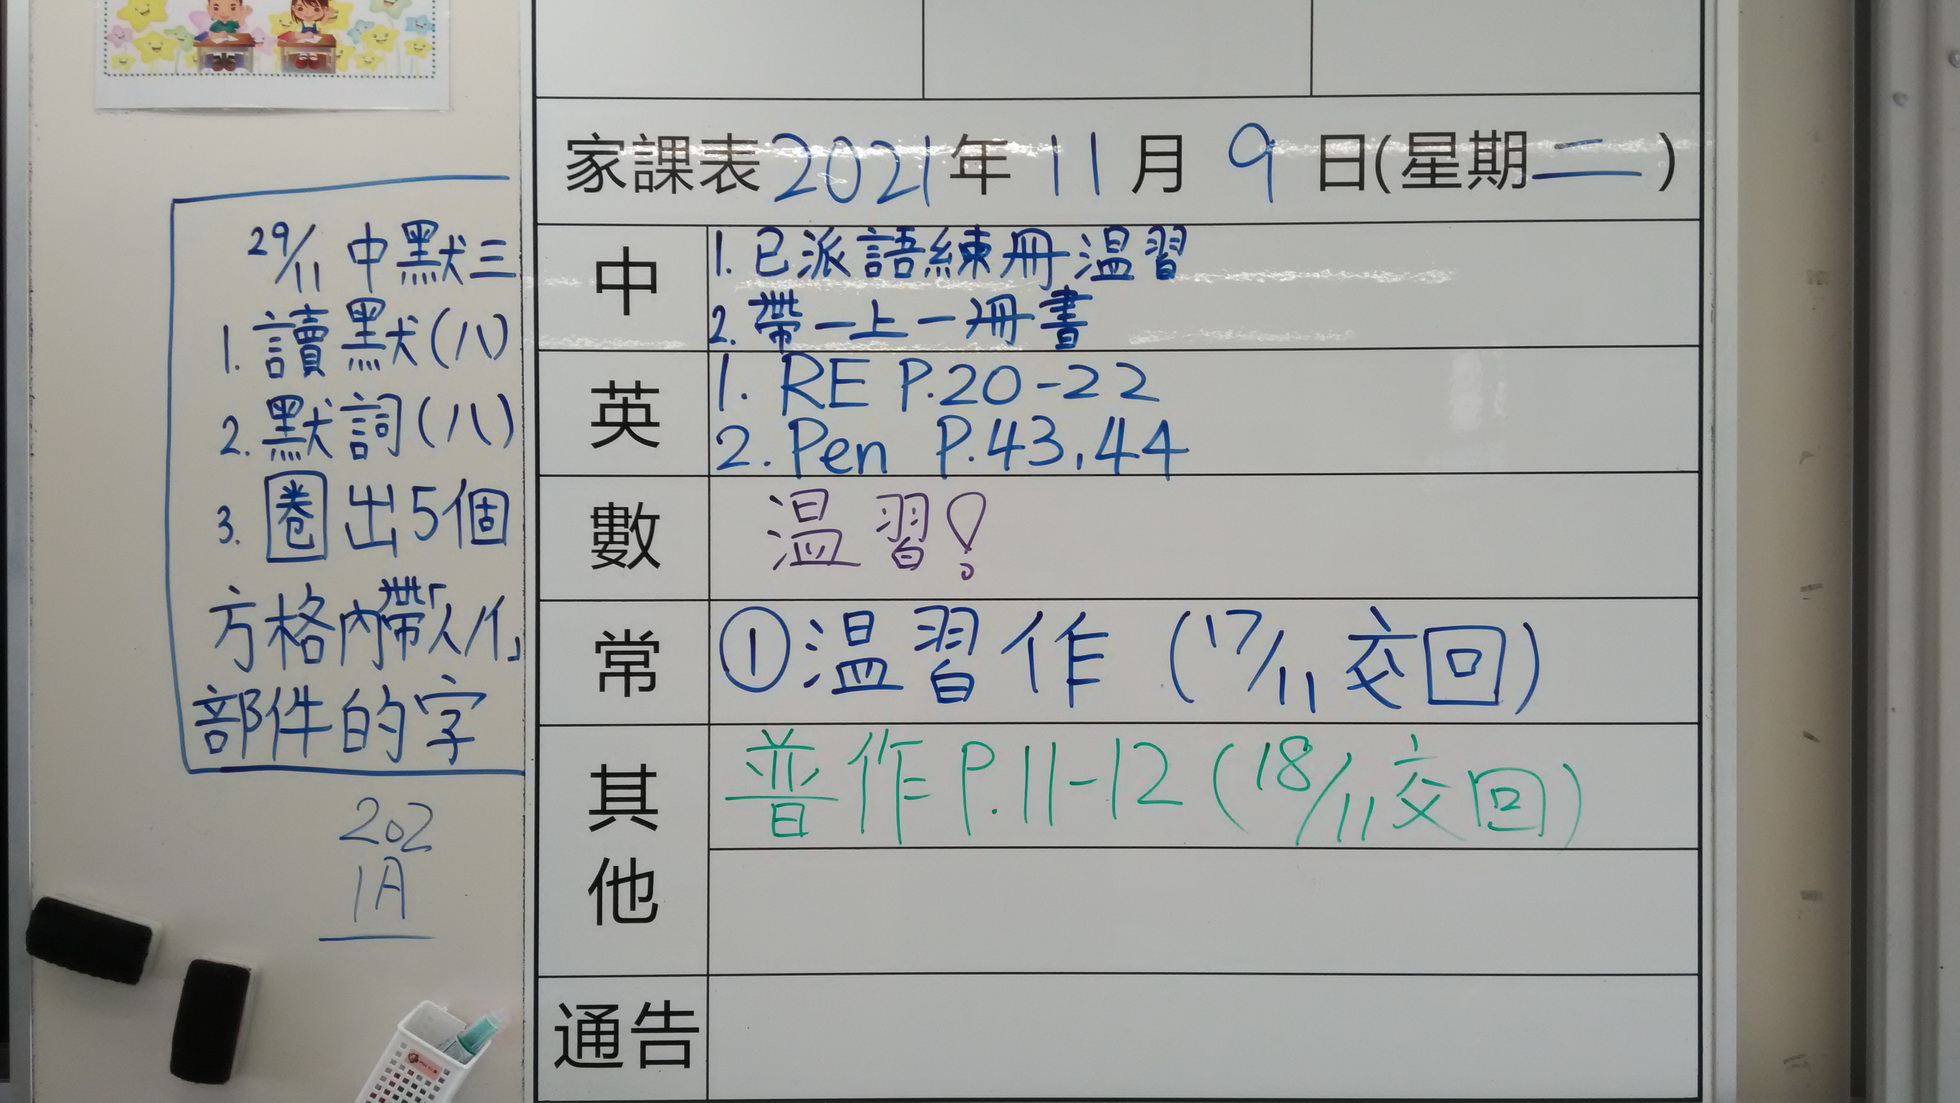 家課表2021年11月9日(星期二)
中
1. 已派語練冊温習
2. 帶一上一冊書
英
1. RE P.20-22
2. Pen P.43,44
數
温習!
常
①温習作 (17/11交回)
其他
普作P.11-12(18/11交回)
通告
29/11 中默三
1. 讀默(八)
2. 默詞(八)
3. 圈出5個
方格內帶「人/亻」
部件的字
202
1A